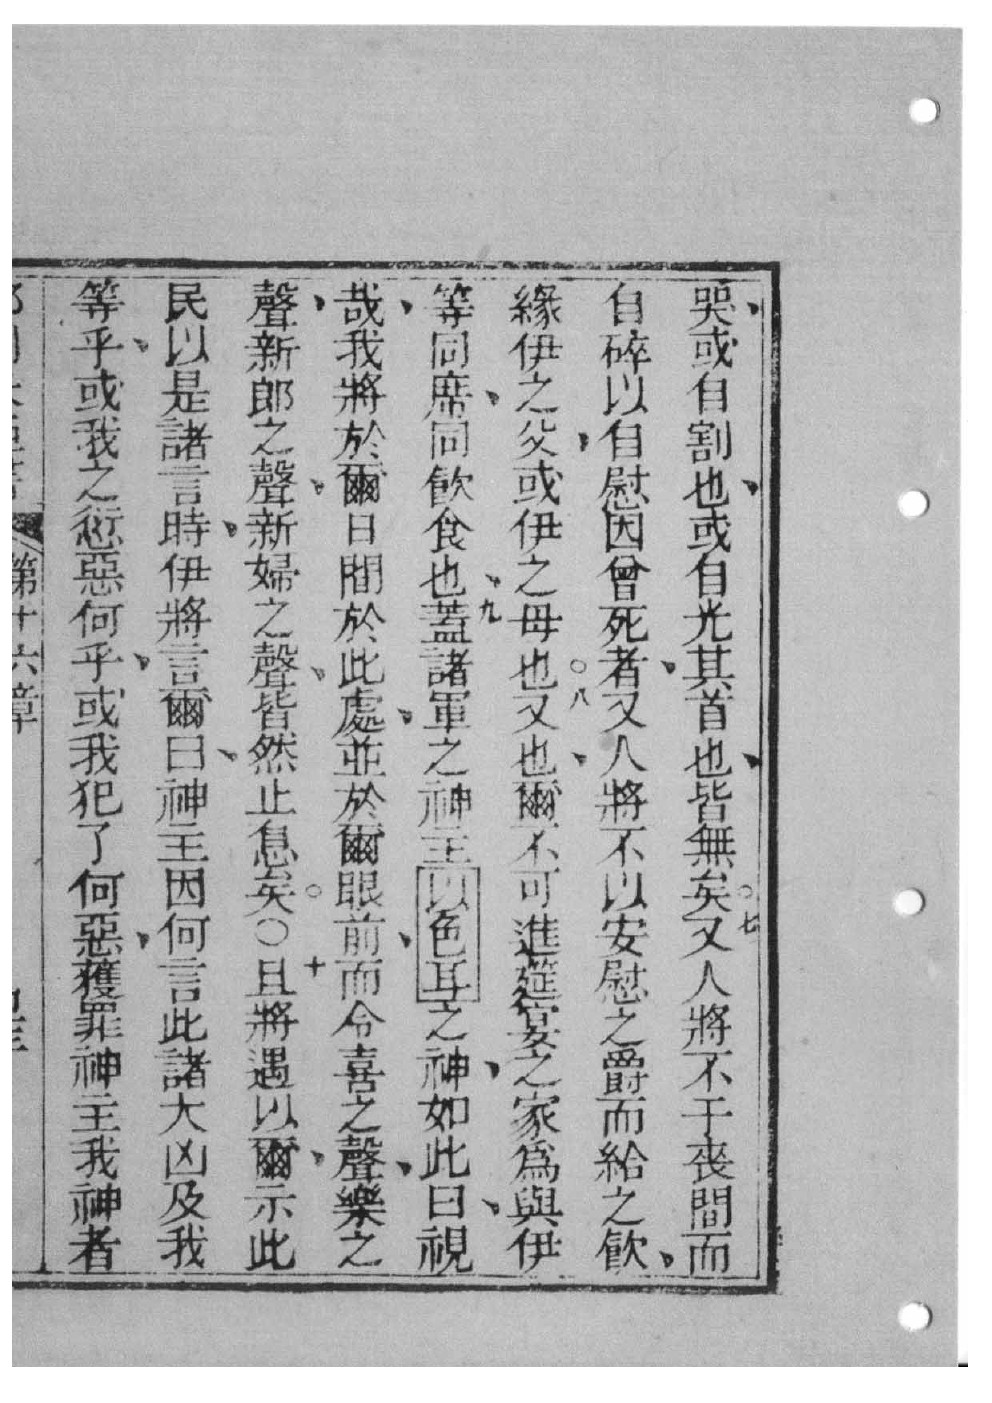 哭或自割也或自光其首也皆無矣○七又人將不于喪間而
自碎以自慰因曾死者又人將不以安慰之爵而給之飲
緣伊之父或伊之母也○八又也爾不可進筵宴之家爲與伊
等同席同飲食也九蓋諸軍之神主以色耳之神如此曰視
哉我將於爾日間於此處並於爾眼前而令喜之聲樂之
聲新郎之聲新婦之聲皆然止息矣○○十且將遇以爾示此
民以是諸言時伊將言爾曰神主因何言此諸大凶及我
等乎或我之愆惡何乎或我犯了何惡獲罪神主我神者
第十六章